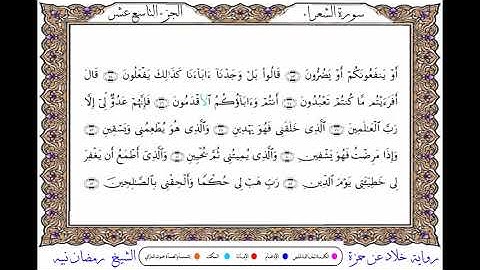 سورة الشعراء
الجزء التاسع عشر
أَوْ يَنفَعُونَكُمْ أَوْ يَضُرُّونَ ۝ قَالُوا۟ بَلْ وَجَدْنَآ ءَابَآءَنَا كَذَٰلِكَ يَفْعَلُونَ ۝ قَالَ
أَفَرَءَيْتُم مَّا كُنتُمْ تَعْبُدُونَ ۝ أَنتُمْ وَءَابَآؤُكُمُ ٱلْأَقْدَمُونَ ۝ فَإِنَّهُمْ عَدُوٌّ لِّىٓ إِلَّا
رَبَّ ٱلْعَـٰلَمِينَ ۝ ٱلَّذِى خَلَقَنِى فَهُوَ يَهْدِينِ ۝ وَٱلَّذِى هُوَ يُطْعِمُنِى وَيَسْقِينِ
۝ وَإِذَا مَرِضْتُ فَهُوَ يَشْفِينِ ۝ وَٱلَّذِى يُمِيتُنِى ثُمَّ يُحْيِينِ ۝ وَٱلَّذِىٓ أَطْمَعُ أَن يَغْفِرَ
لِى خَطِيٓـَٔتِى يَوْمَ ٱلدِّينِ ۝ رَبِّ هَبْ لِى حُكْمًا وَأَلْحِقْنِى بِٱلصَّـٰلِحِينَ ۝
رواية خلاد عن حمزة
الشيخ رمضان نبيه